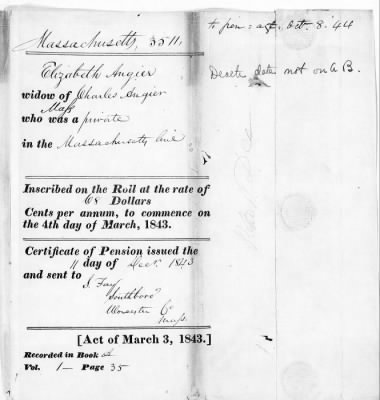 Massachusetts, 3511.
Elizabeth Angier
widow of Charles Angier
Mass
who was a private
in the Massachusetts line
Inscribed on the Roll at the rate of
68 Dollars
Cents per annum, to commence on
the 4th day of March, 1843.
Certificate of Pension issued the
11 day of Decr. 1843
and sent to
S. Fay
Southboro'
Worcester Co
Mass
[Act of March 3, 1843.]
Recorded in Book
Vol. 1 — Page 35
to pen: agt. Oct. 8. 44
date not on A B.